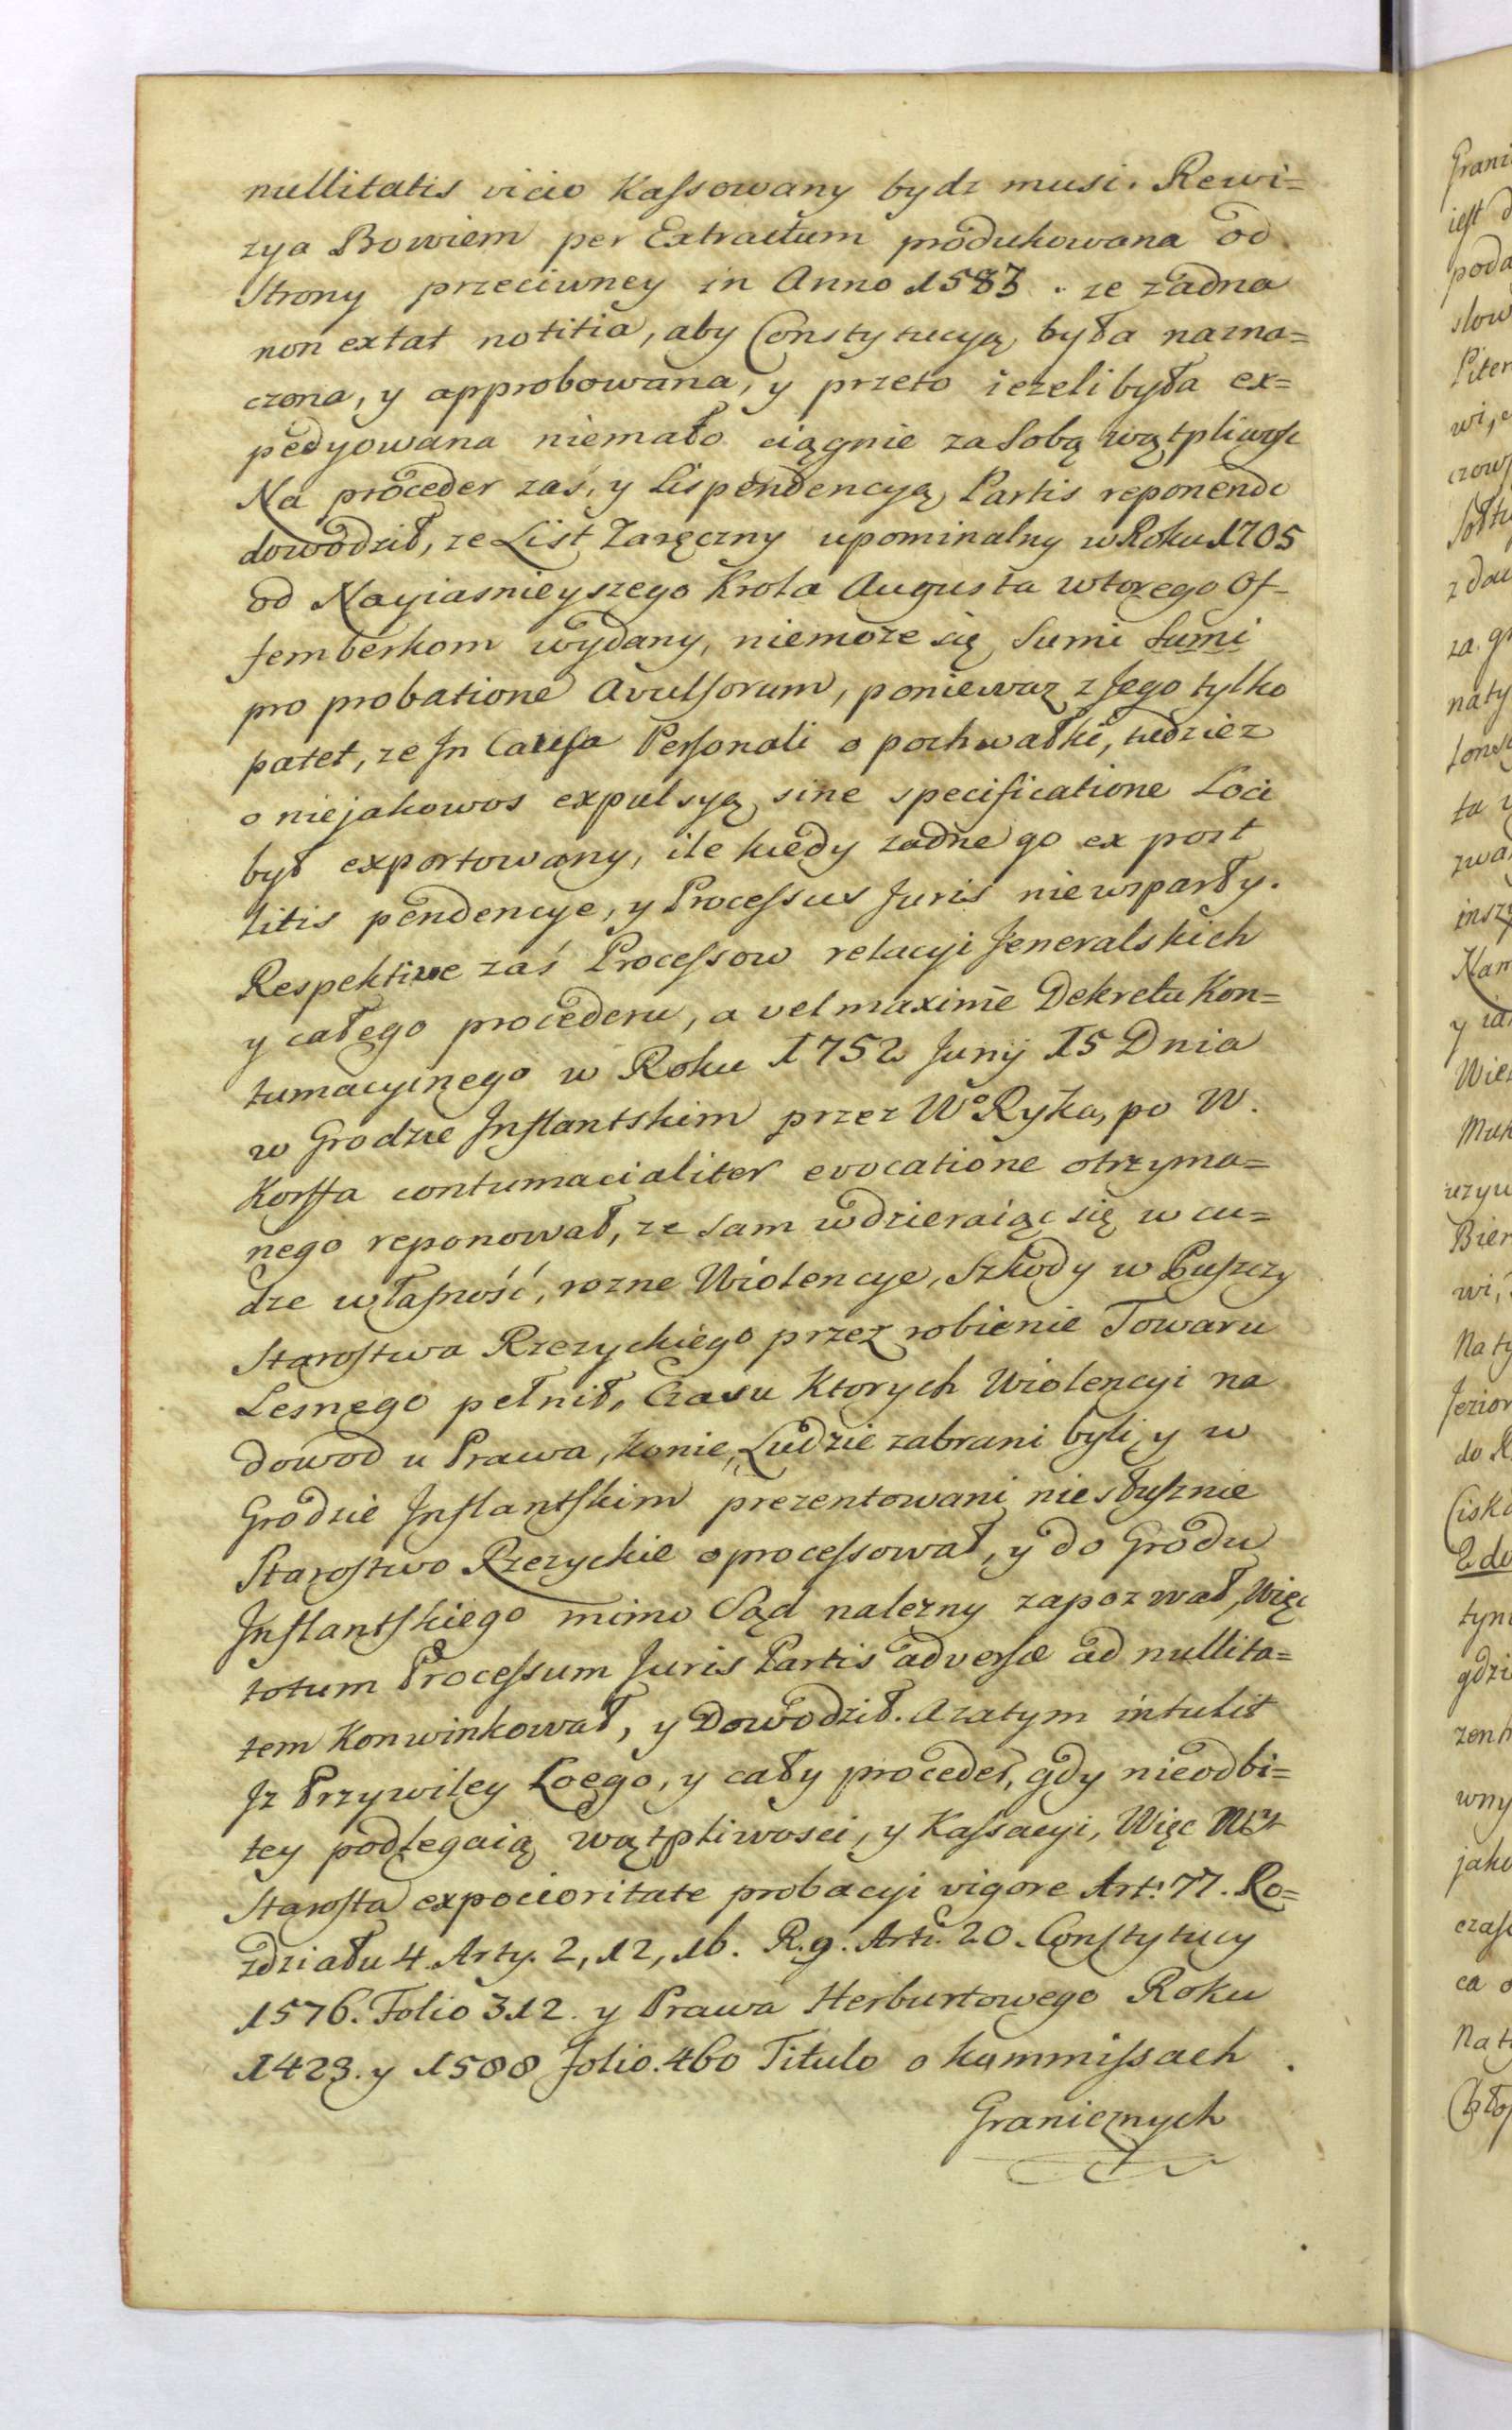 nullitatis vicio Kassowany bydz musi. Rewi=
zya Bowiem per Extractum produkowana od
Strony przeciwney in Anno 1583. ze zadna
non extat notitia, aby Constytucyą była nazna=
czona, y approbowana, y przeto iezeli była ex=
pedyowana niemało ciągnie za Sobą wątpliwosc
Na proceder zaś, y Lispendencyą, Partis reponendo
dowodził, ze List Zaręczny upominalny w Roku 1705
od Nayiasnieyszego Krola Augusta wtorego Of-
temberkom wydany, niemoze się Sumi Sumi
pro probatione Avulsorum, poniewaz z Jego tylko
patet, ze Jn Causa Personali o pochwałki, tudziez
o niejakowos expulsyą, sine specificatione Loci
był exportowany, ile kiedy zadnego ex post
litis pendencye, y Processus Juris niewsparły.
Respektive zaś Processow relacyi Jeneralskich
y całego procederu, a vel maxime Dekretu Kon=
tumacyinego w Roku 1752 Junij 15 Dnia
w Grodzie Jnflantskim przez Wo Ryka, po W.
Korffa contumacialiter evocatione otrzyma=
nego reponował, ze Sam wdzieraiąc się w cu=
dze własność, rozne Wiolencye, Szkody w Puszczy
Starostwa Rzezyckiego przez robienie Towaru
Lesnego pełnił, Czasu Ktorych Wiolencyi na
dowod u Prawa, Konie, Ludzie zabrani byli, y w
Grodzie Jnflantskim prezentowani niesłusznie
Starostwo Rzezyckie oprocessował, y do Grodu
Jnflantskiego mimo Sąd nalezny zapozwał, Więc
totum Processum Juris Partis adversæ ad nullita=
tem Konwinkował, y Dowodził. A zatym intulit
Jz Przywiley Loego, y cały proceder, gdy nieodbi=
tey podlegaią wątpliwosci, y Kassacyi, Więc
Starosta expocioritate probacyi vigore Art: 77. Ro=
zdziału 4. Arty. 2, 12, 16. R. 9. Art: 20. Constytucy
1576. Folio 312. y Prawa Herburtowego Roku
1423. y 1588 folio. 460 Titulo o kummissach
Granicznych